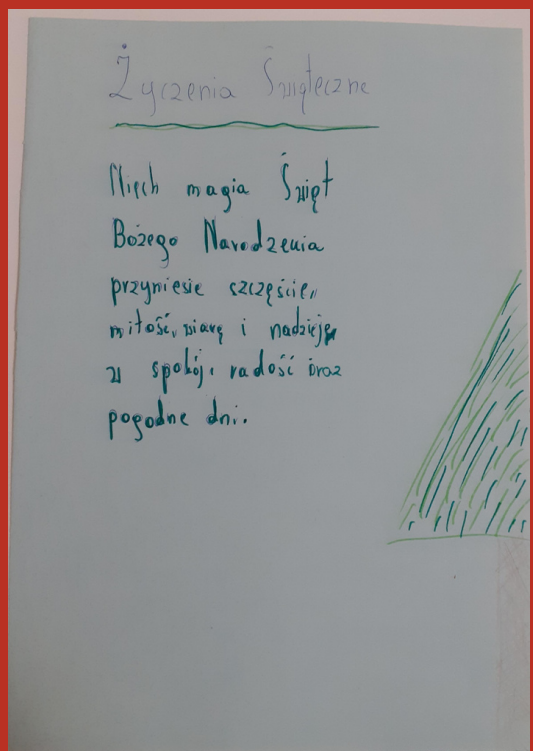 Życzenia Świąteczne
Niech magia Świąt
Bożego Narodzenia
przyniesie szczęście,
miłość, wiarę i nadzieję
w spokój, radość oraz
pogodne dni.